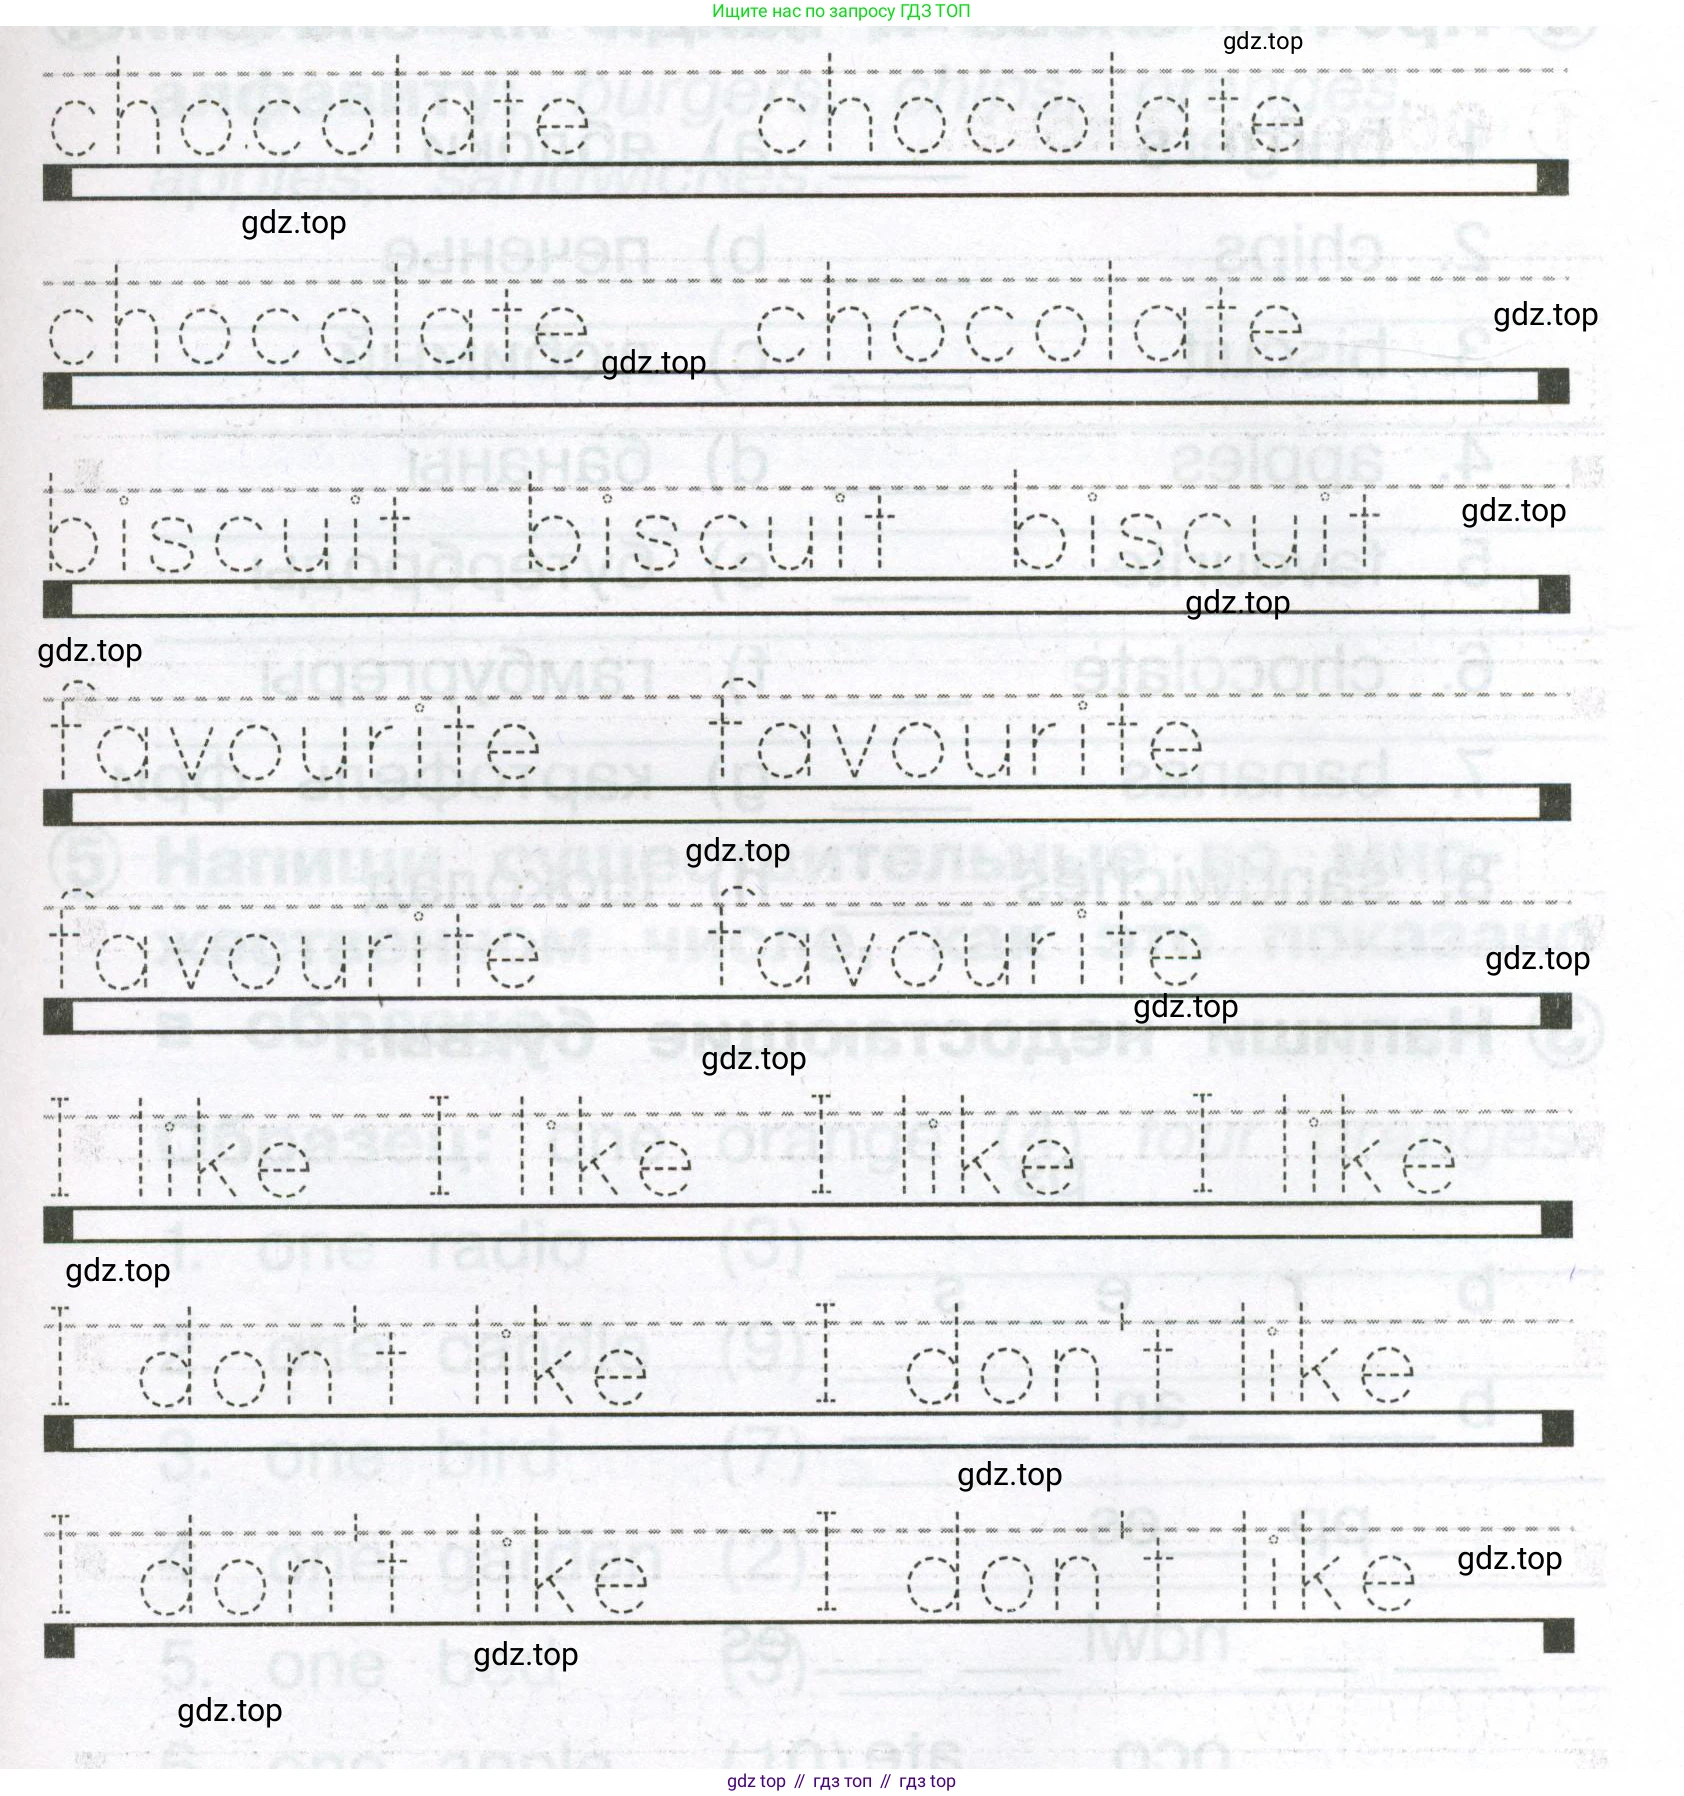 Ищите нас по запросу ГДЗ ТОП
gdz.top
chocolate chocolate
gdz.top
chocolate chocolate
gdz.top
gdz.top
biscuit biscuit biscuit
gdz.top
gdz.top
gdz.top
favourite favourite
gdz.top
favourite favourite
gdz.top
gdz.top
gdz.top
I like I like I like I like
gdz.top
I don't like I don't like
gdz.top
I don't like I don't like
gdz.top
gdz.top
gdz.top
gdz top // гдз топ // гдз top